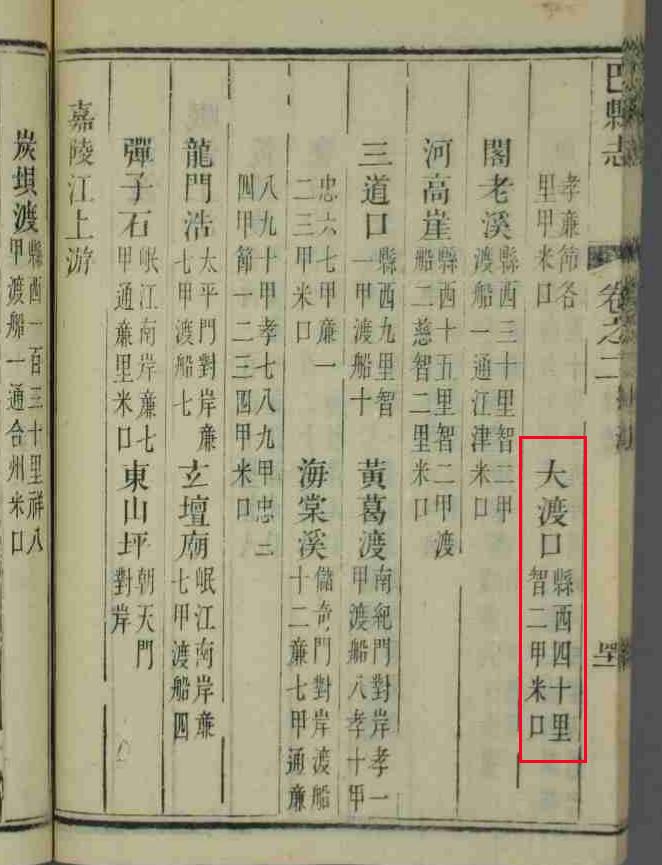 巴縣志 卷之二
孝廉節各里甲米口 大渡口 縣西四十里智二甲米口
閣老溪 縣西三十里智二甲渡船一通江津米口
河高崖 縣西十五里智二甲渡船二慈智二里米口
三道口 縣西九里智一甲渡船十 黃葛渡 南紀門對岸孝一甲渡船八孝十甲
忠六七甲廉一二三甲米口 海棠溪 儲奇門對岸渡船十二廉七甲通廉
八九十甲孝七八九甲忠三四甲節一二三四甲米口
龍門浩 太平門對岸廉七甲渡船七 玄壇廟 岷江南岸廉七甲渡船四
彈子石 岷江南岸廉七甲通廉里米口 東山坪 朝天門對岸
嘉陵江上游
炭垻渡 縣西一百三十里祥八甲渡船一通合州米口